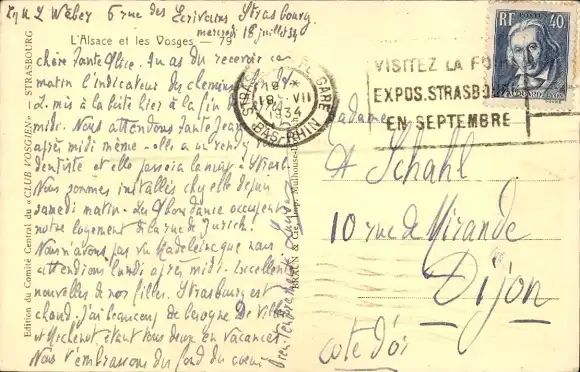 L Weber 6 rue des Ecrivains Strasbourg
mercredi 18 juillet 34
L'Alsace et les Vosges — 79
chère Tante Alice. Tu as dû recevoir ce
matin l'indicateur du chemin de
L. mis à la boîte hier à la fin
midi. Nous attendons Tante Jeanne
après midi même - elle a un rendez
dentiste et elle passera la
Nous sommes installés chez elle depuis
samedi matin. occupent
notre logement de la rue de Zurich!
Nous n'avons pas vu Madeleine que nous
attendions lundi après midi. Excellentes
nouvelles de nos filles. Strasbourg est
chaud. j'ai beaucoup de besogne De Ville
et Michenot, étant tous deux en vacances
Nous t'embrassons du fond du coeur
bien tendrement
Edition du Comité Central du « CLUB VOSGIEN » STRASBOURG
BRAUN & Cie, Imp. Mulhouse-
STRASBOURG GARE
18
18 VII
1934
BAS-RHIN
VISITEZ LA
EXPOS. STRASBO
EN SEPTEMBRE
RF 40c
Madame
A Schahl
10 rue de Mirande
Dijon
Cote d'or